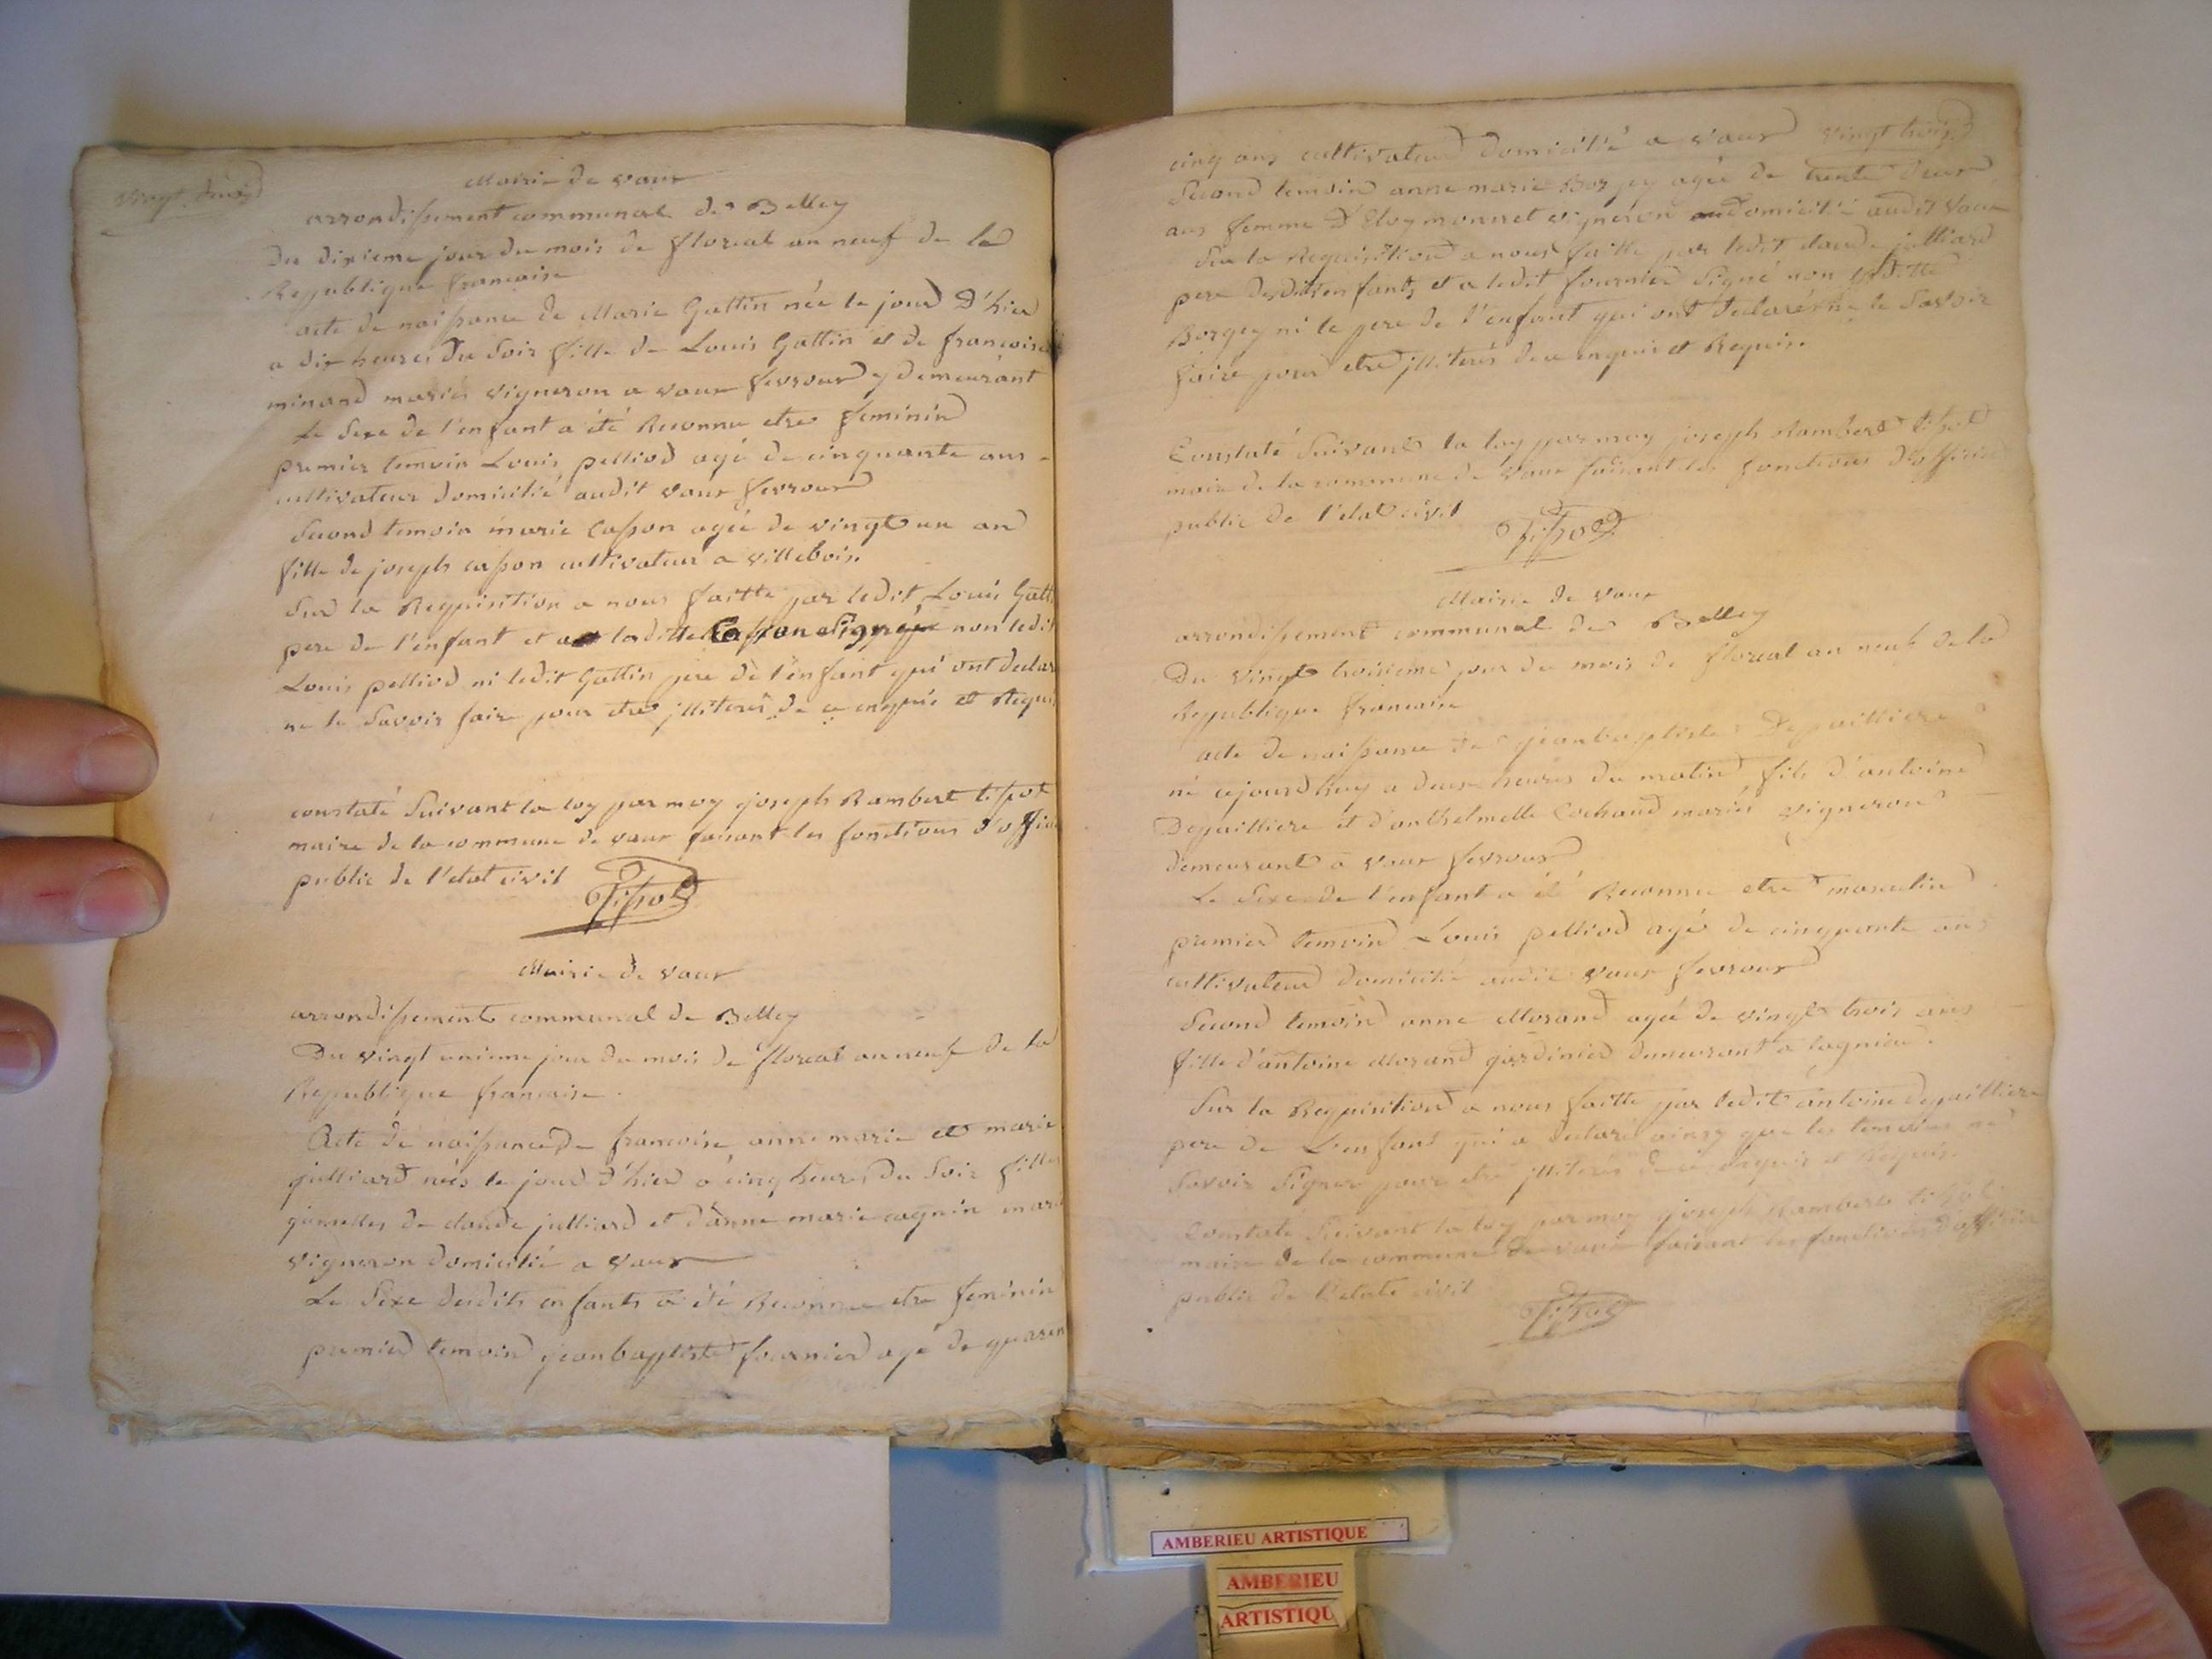 vingt deux
Mairie de vaux
arrondissement communal de Belley
Du dixieme jour du mois de floreal an neuf de la
Republique francaise
acte de naissance de Marie Gattin née le jour D'hier
a dix heures du Soir fille de Louis Gattin et de francoise
minand mariés vigneron a vaux fevroux y demeurant
Le Sexe de l'enfant a été Reconnu etre feminin
premier temoin Louis pelliod agé de cinquante ans
cultivateur domicilié audit vaux fevroux
Second temoin marie Casson agée de vingt un an
fille de joseph casson cultivateur a villebois.
Sur la Requisition a nous faitte par ledit Louis Gatt
pere de l'enfant et a laditte Casson Signé non ledit
Louis pelliod ni ledit Gattin pere de l'enfant qui ont declar
ne le Savoir faire pour etre jlliterés de ce enquis et Requi
constaté Suivant la loy par moy joseph Rambert tissot
maire de la commune de vaux faisant les fonctions d'offici
public de l'etat civil
Tissot
Mairie de vaux
arrondissement communal de Belley
Du vingt unieme jour du mois de floreal an neuf de la
Republique francaise.
Acte de naissance de francoise, anne marie et marie
julliard nées le jour d'hier a cinq heures du Soir filles
gemelles de claude julliard et d'anne marie cagnin mari
vigneron domicilié a vaux
Le Sexe desdits enfants a été Reconnu etre feminin
premier temoin jeanbaptiste fournier agé de quaren
cinq ans cultivateur domicilié a vaux vingt trois
Second temoin anne marie Borgey agée de trente deux
ans femme D'Eloy monnet vigneron domicilié audit vaux
Sur la Requisition a nous faitte par ledit claude julliard
pere desdits enfants et a ledit fournier Signé non laditte
Borgey ni le pere de l'enfant qui ont declaré ne le Savoir
faire pour etre jlliterés de ce enquis et Requis.
Constaté Suivant la loy par moy joseph Rambert tissot
maire de la commune de vaux faisant les fonctions d'officier
public de l'etat civil
Tissot
Mairie de vaux
arrondissement communal de Belley
Du vingt troisieme jour du mois de floreal an neuf de la
Republique francaise
acte de naissance de jeanbaptiste Depailliere
né cejourd'huy a deux heures du matin fils d'antoine
Depailliere et d'anthelmette Cochand mariés vigneron
demeurant a vaux fevroux
Le Sexe de l'enfant a été Reconnu etre masculin
premier temoin Louis pelliod agé de cinquante ans
cultivateur domicilié audit vaux fevroux
Second temoin anne Morand agée de vingt trois ans
fille d'antoine Morand jardinier demeurant a lagnieu.
Sur la Requisition a nous faitte par ledit antoine depailliere
pere de L'enfant qui a declaré ainsy que les temoins ne
Savoir Signer pour etre jlliterés de ce enquis et Requis.
Constaté Suivant la loy par moy joseph Rambert tissot
maire de la commune de vaux faisant les fonctions d'officier
public de l'etat civil
Tissot
AMBERIEU ARTISTIQUE
AMBERIEU
ARTISTIQU